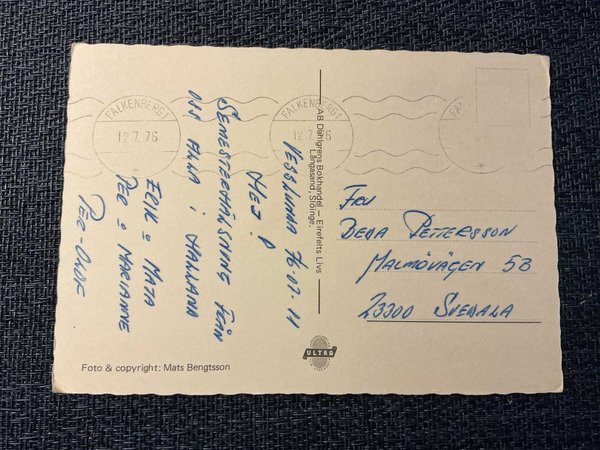 FALKENBERG 1
12.7.76
FALKENBERG 1
12.7.76
FALKENBERG
VESSLUNDA 76-07-11
HEJ!
SEMESTERHÄLSNING FRÅN
OSS ALLA I HALLAND
ERIK o MAJA
PER o MARIANNE
PER-OLOF
AB Dahlgrens Bokhandel – Eirefelts Livs
Långasand, Slöinge.
FRU
BEDA PETTERSSON
MALMÖVÄGEN 5B
23300 SVEDALA
ULTRA
Foto & copyright: Mats Bengtsson